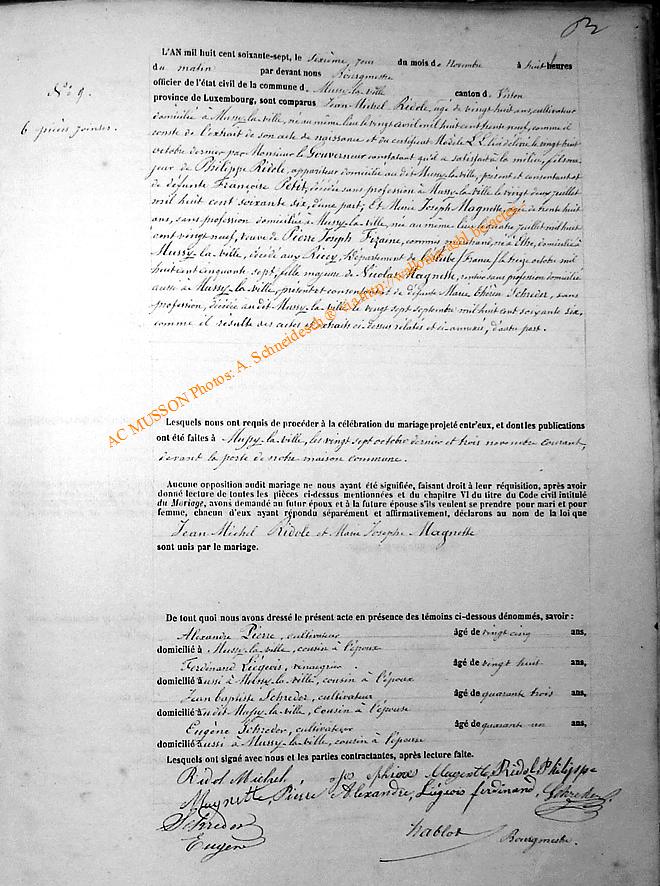 82
L'AN mil huit cent soixante-sept, le sixième jour du mois de novembre à huit heures
du matin par devant nous Bourgmestre
officier de l'état civil de la commune de Mussy-la-ville canton de Virton
N° 9.
province de Luxembourg, sont comparus Jean Michel Ridole, âgé de vingt huit ans, cultivateur
6 pièces jointes.
domicilié à Mussy-la-ville, né au même lieu le vingt avril mil huit cent trente neuf, comme il
conste de l'extrait de son acte de naissance et du certificat Modèle L L lui délivré le vingt huit
octobre dernier par Monsieur le Gouverneur constatant qu'il a satisfait à la milice, fils ma-
jeur de Philippe Ridole, appariteur domicilié au dit Mussy-la-ville, présent et consentant et
de défunte Françoise Petit, décédée sans profession à Mussy-la-ville le vingt deux juillet
mil huit cent soixante six, d'une part; Et Marie Joseph Magnette, âgée de trente huit
ans, sans profession domiciliée à Mussy-la-ville, née au même lieu le quatre juillet mil huit
cent vingt neuf, veuve de Pierre Joseph Fizaine, commis négociant, né à Ethe, domicilié à
Mussy-la-ville, décédé aux Riceys, Département de l'Aube, France le treize octobre mil
huit cent cinquante sept, fille majeure de Nicolas Magnette, rentier sans profession domicilié
aussi à Mussy-la-ville, présent et consentant et de défunte Marie Thérèse Schreder, sans
profession, décédée au dit Mussy-la-ville le vingt sept septembre mil huit cent soixante six,
comme il résulte des actes et extraits ci-dessus relatés et ci-annexés, d'autre part.
AC MUSSON Photos: A. Schneidesch © via http://wallonia-asbl.be/actes-
Lesquels nous ont requis de procéder à la célébration du mariage projeté entr'eux, et dont les publications
ont été faites à Mussy-la-ville, les vingt sept octobre dernier et trois novembre courant,
devant la porte de notre maison commune.
Aucune opposition audit mariage ne nous ayant été signifiée, faisant droit à leur réquisition, après avoir
donné lecture de toutes les pièces ci-dessus mentionnées et du chapitre VI du titre du Code civil intitulé
du Mariage, avons demandé au futur époux et à la future épouse s'ils veulent se prendre pour mari et pour
femme, chacun d'eux ayant répondu séparément et affirmativement, déclarons au nom de la loi que
Jean Michel Ridole et Marie Josephe Magnette
sont unis par le mariage.
De tout quoi nous avons dressé le présent acte en présence des témoins ci-dessous dénommés, savoir :
Alexandre Pierre, cultivateur âgé de vingt cinq ans,
domicilié à Mussy-la-ville, cousin à l'époux
Ferdinand Liégeois, âgé de vingt huit ans,
domicilié aussi à Mussy-la-ville, cousin à l'époux
Jean baptiste Schreder, cultivateur âgé de quarante trois ans,
domicilié au dit Mussy-la-ville, cousin à l'épouse
Eugène Schreder, cultivateur âgé de quarante un ans,
domicilié aussi à Mussy-la-ville, cousin à l'épouse
Lesquels ont signé avec nous et les parties contractantes, après lecture faite.
Ridol Michel, Magentte, Ridol Philippe
Magnette, Pierre Alexandre, Liégeois ferdinand, Schreder
Schreder
Eugene
Hablot Bourgmestre.